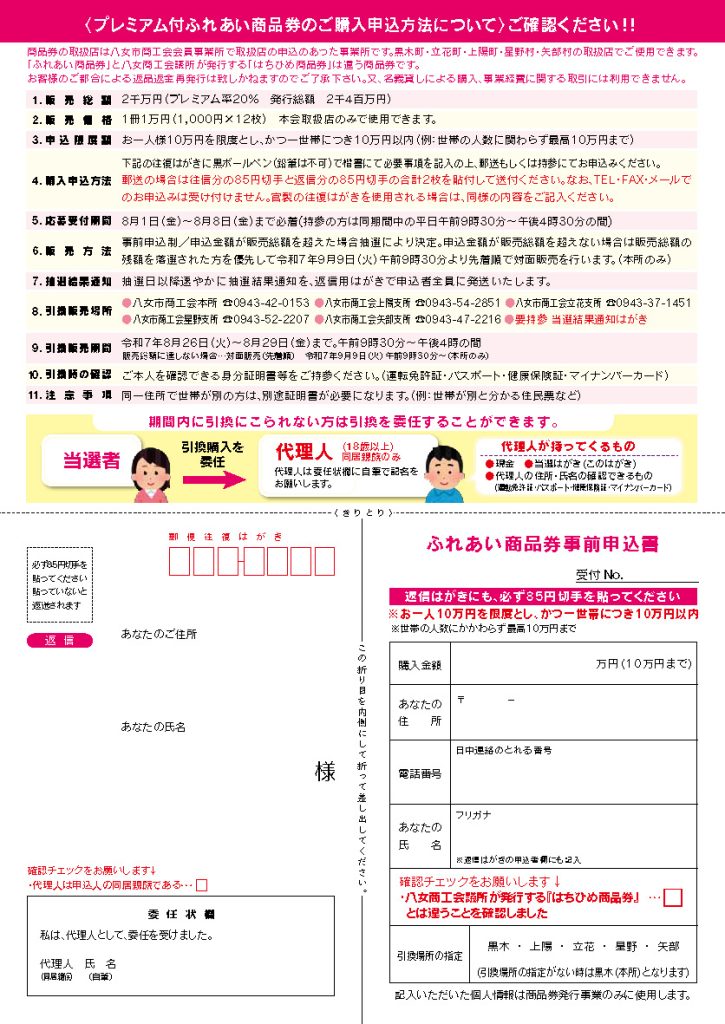 〈プレミアム付ふれあい商品券のご購入申込方法について〉ご確認ください!!
商品券の取扱店は八女市商工会会員事業所で取扱店の申込のあった事業所です。黒木町・立花町・上陽町・星野村・矢部村の取扱店でご使用できます。
「ふれあい商品券」と八女商工会議所が発行する「はちひめ商品券」は違う商品券です。
お客様のご都合による返品返金再発行は致しかねますのでご了承下さい。又、名義貸しによる購入、事業経費に関する取引には利用できません。
1. 販売総額 2千万円(プレミアム率20% 発行総額 2千4百万円)
2. 販売価格 1冊1万円(1,000円×12枚) 本会取扱店のみで使用できます。
3. 申込限度額 お一人様10万円を限度とし、かつ一世帯につき10万円以内(例:世帯の人数に関わらず最高10万円まで)
4. 購入申込方法 下記の往復はがきに黒ボールペン(鉛筆は不可)で楷書にて必要事項を記入の上、郵送もしくは持参にてお申込みください。
郵送の場合は往信分の85円切手と返信分の85円切手の合計2枚を貼付して送付ください。なお、TEL・FAX・メールで
のお申込みは受け付けません。官製の往復はがきを使用される場合は、同様の内容をご記入ください。
5. 応募受付期間 8月1日(金)~8月8日(金)まで必着(持参の方は同期間中の平日午前9時30分~午後4時30分の間)
6. 販売方法 事前申込制/申込金額が販売総額を超えた場合抽選により決定。申込金額が販売総額を超えない場合は販売総額の
残額を落選された方を優先して令和7年9月9日(火)午前9時30分より先着順で対面販売を行います。(本所のみ)
7. 抽選結果通知 抽選日以降速やかに抽選結果通知を、返信用はがきで申込者全員に発送いたします。
8. 引換販売場所 ●八女市商工会本所 ☎0943-42-0153 ●八女市商工会上陽支所 ☎0943-54-2851 ●八女市商工会立花支所 ☎0943-37-1451
●八女市商工会星野支所 ☎0943-52-2207 ●八女市商工会矢部支所 ☎0943-47-2216 ●要持参 当選結果通知はがき
9. 引換販売期間 令和7年8月26日(火)~8月29日(金)まで。午前9時30分~午後4時の間
販売総額に達しない場合…対面販売(先着順) 令和7年9月9日(火)午前9時30分~(本所のみ)
10. 引換時の確認 ご本人を確認できる身分証明書等をご持参ください。(運転免許証・パスポート・健康保険証・マイナンバーカード)
11. 注意事項 同一住所で世帯が別の方は、別途証明書が必要になります。(例:世帯が別と分かる住民票など)
期間内に引換にこられない方は引換を委任することができます。
当選者
引換購入を
委任
代理人 (18歳以上)
同居親族のみ
代理人は委任状欄に自筆で記名を
お願いします。
代理人が持ってくるもの
●現金 ●当選はがき(このはがき)
●代理人の住所・氏名の確認できるもの
(運転免許証・パスポート・健康保険証・マイナンバーカード)
〈きりとり〉
必ず85円切手を
貼ってください
貼っていないと
返送されます
返信
郵便往復はがき
あなたのご住所
あなたの氏名
様
確認チェックをお願いします↓
・代理人は申込人の同居親族である…□
委任状欄
私は、代理人として、委任を受けました。
代理人 氏 名
(同居親族) (自筆)
この折り目を内側にして折って差し出してください。
ふれあい商品券事前申込書
受付 No.
返信はがきにも、必ず85円切手を貼ってください
※お一人10万円を限度とし、かつ一世帯につき10万円以内
※世帯の人数にかかわらず最高10万円まで
購入金額 万円(10万円まで)
あなたの
住 所
〒 −
電話番号
日中連絡のとれる番号
あなたの
氏 名
フリガナ
※返信はがきの申込者欄にも記入
確認チェックをお願いします↓
・八女商工会議所が発行する『はちひめ商品券』 …□
とは違うことを確認しました
引換場所の指定
黒木 ・ 上陽 ・ 立花 ・ 星野 ・ 矢部
(引換場所の指定がない時は黒木(本所)となります)
記入いただいた個人情報は商品券発行事業のみに使用します。